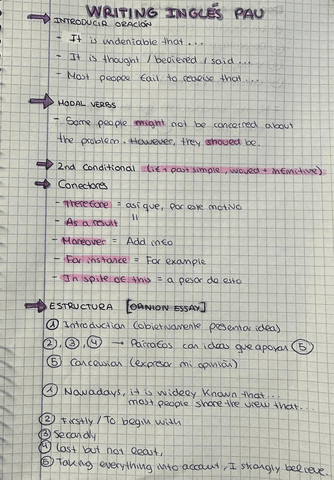 WRITING INGLÉS PAU
INTRODUCIR ORACIÓN
- It is undeniable that...
- It is thought / believed / said...
- Most people fail to realise that....
MODAL VERBS
- Some people might not be concerned about
the problem. However, they should be.
2nd Conditional (if + past simple, would + infinitive)
Conectores
- Therefore = así que, por este motivo
- As a result "
- Moreover = Add info
- For instance = For example
- In spite of this = a pesar de esto
ESTRUCTURA [OPINION ESSAY]
① Introduction (objetivamente presentar idea)
②, ③, ④ → Párrafos con ideas que apoyan ⑤
⑤ Conclusion (expresar mi opinión)
① Nowadays, it is widely known that...
most people share the view that...
② Firstly / To begin with
③ Secondly
④ Last but not least,
⑤ Taking everything into account, I strongly believe.